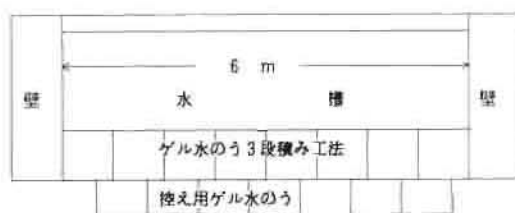 6 m
壁 水 槽 壁
ゲル水のう3段積み工法
控え用ゲル水のう